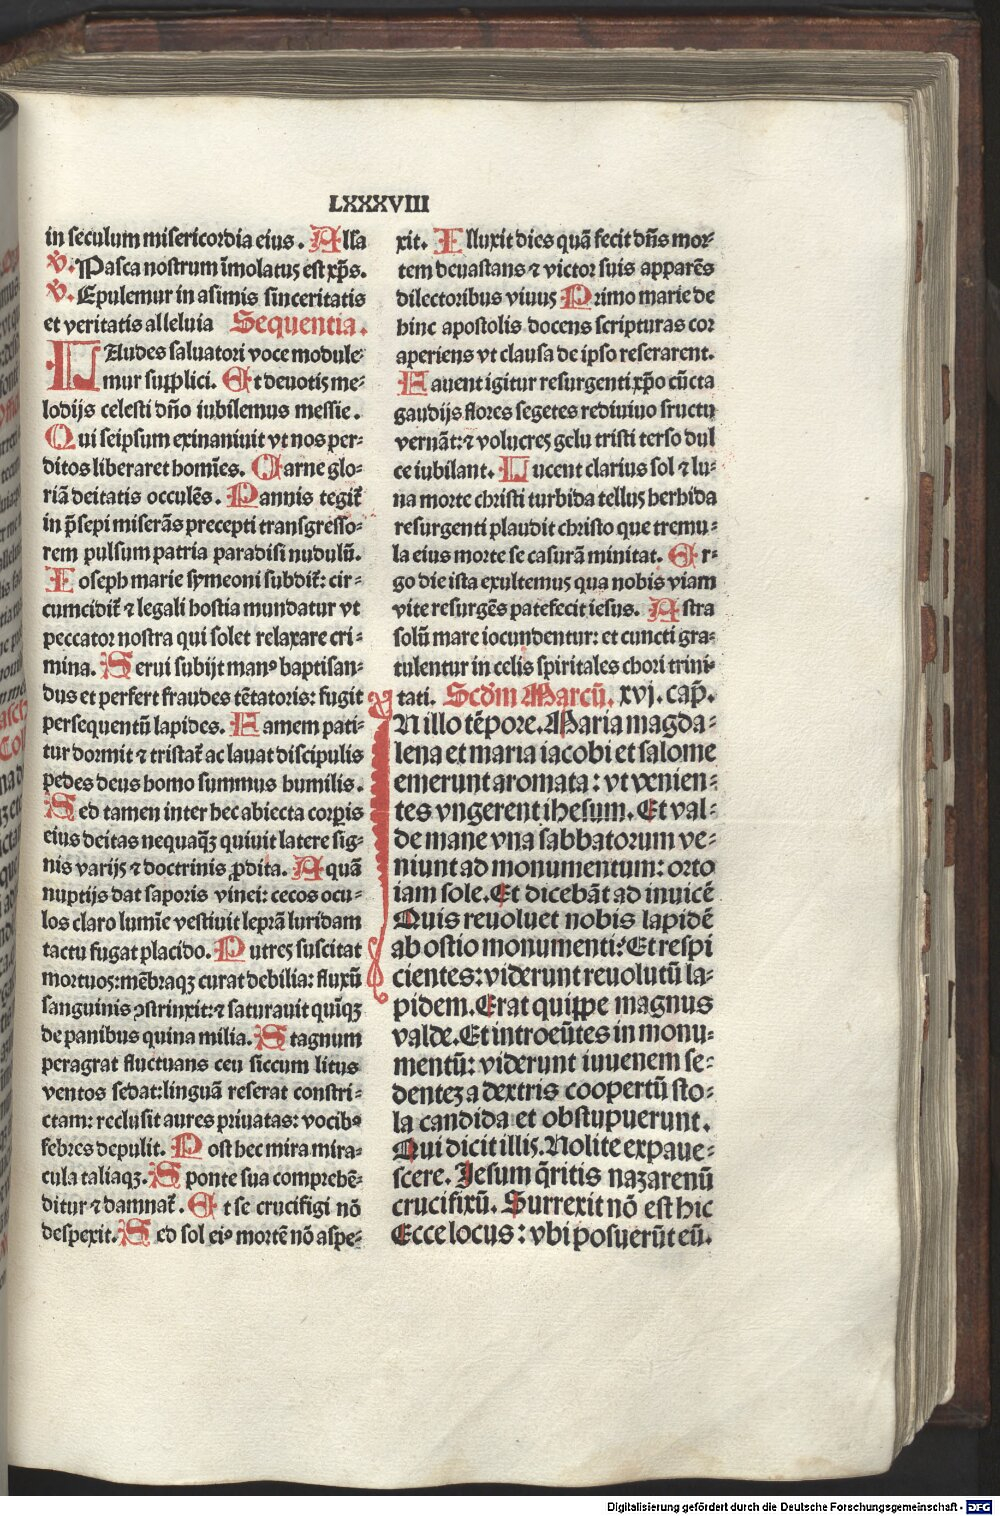 LXXXVIII
in seculum misericordia eius. Alľa
V. Pasca nostrum īmolatus est xp̄s.
V. Epulemur in asimis sinceritatis
et veritatis alleluia Sequentia.
LAudes saluatori voce module⸗
mur supplici. Et deuotis me⸗
lodijs celesti dn̄o iubilemus messie.
Qui seipsum exinaniuit vt nos per⸗
ditos liberaret homīes. Carne glo⸗
riā deitatis occulēs. Pannis tegit᷑
in p̄sepi miserās precepti transgresso⸗
rem pulsum patria paradisi nudulū.
Ioseph marie symeoni subdit᷑: cir⸗
cumcidit᷑ ⁊ legali hostia mundatur vt
peccator nostra qui solet relaxare cri⸗
mina. Serui subijt manꝰ baptisan⸗
dus et perfert fraudes tētatoris: fugit
persequentū lapides. Famem pati⸗
tur dormit ⁊ tristat᷑ ac lauat discipulis
pedes deus homo summus humilis.
Sed tamen inter hec abiecta corꝑis
eius deitas nequaqꝫ quiuit latere sig⸗
nis varijs ⁊ doctrinis ꝓdita. Aquā
nuptijs dat saporis vinei: cecos ocu⸗
los claro lumīe vestiuit leprā luridam
tactu fugat placido. Putres suscitat
mortuos: mēbraqꝫ curat debilia: fluxū
sanguinis ꝯstrinxit: ⁊ saturauit quīqꝫ
de panibus quina milia. Stagnum
peragrat fluctuans ceu siccum litus
ventos sedat: linguā reserat constri⸗
ctam: reclusit aures priuatas: vocibꝰ
febres depulit. Post hec mira mira⸗
cula taliaqꝫ. Sponte sua comprehē⸗
ditur ⁊ damnat᷑. Et se crucifigi nō
despexit. Sed sol eiꝰ mortē nō aspe⸗
xit. Illuxit dies quā fecit dn̄s mor⸗
tem deuastans ⁊ victor suis apparēs
dilectoribus viuus Primo marie de
hinc apostolis docens scripturas cor
aperiens vt clausa de ipso reserarent.
Fauent igitur resurgenti xp̄o cūcta
gaudijs flores segetes rediuiuo fructu
vernāt: ⁊ volucres gelu tristi terso dul
ce iubilant. Lucent clarius sol ⁊ lu⸗
na morte christi turbida tellus herbida
resurgenti plaudit christo que tremu⸗
la eius morte se casurā minitat. Er⸗
go die ista exultemus qua nobis viam
vite resurgēs patefecit iesus. Astra
solū mare iocundentur: et cuncti gra⸗
tulentur in celis spiritales chori trini⸗
tati. Scd̄m Marcū. xvj. cap̄.
IN illo tēpore. Maria magda⸗
lena et maria iacobi et salome
emerunt aromata: vt venien⸗
tes vngerent ihesum. Et val⸗
de mane vna sabbatorum ve⸗
niunt ad monumentum: orto
iam sole. Et dicebāt ad inuicē
Quis reuoluet nobis lapidē
ab ostio monumenti: Et respi
cientes: viderunt reuolutū la⸗
pidem. Erat quippe magnus
valde. Et introeūtes in monu⸗
mentū: viderunt iuuenem se⸗
dentez a dextris coopertū sto⸗
la candida et obstupuerunt.
Qui dicit illis. Nolite expaue⸗
scere. Jesum q̄ritis nazarenū
crucifixū. Surrexit nō est hic
Ecce locus: vbi posuerūt eū.
Digitalisierung gefördert durch die Deutsche Forschungsgemeinschaft - DFG